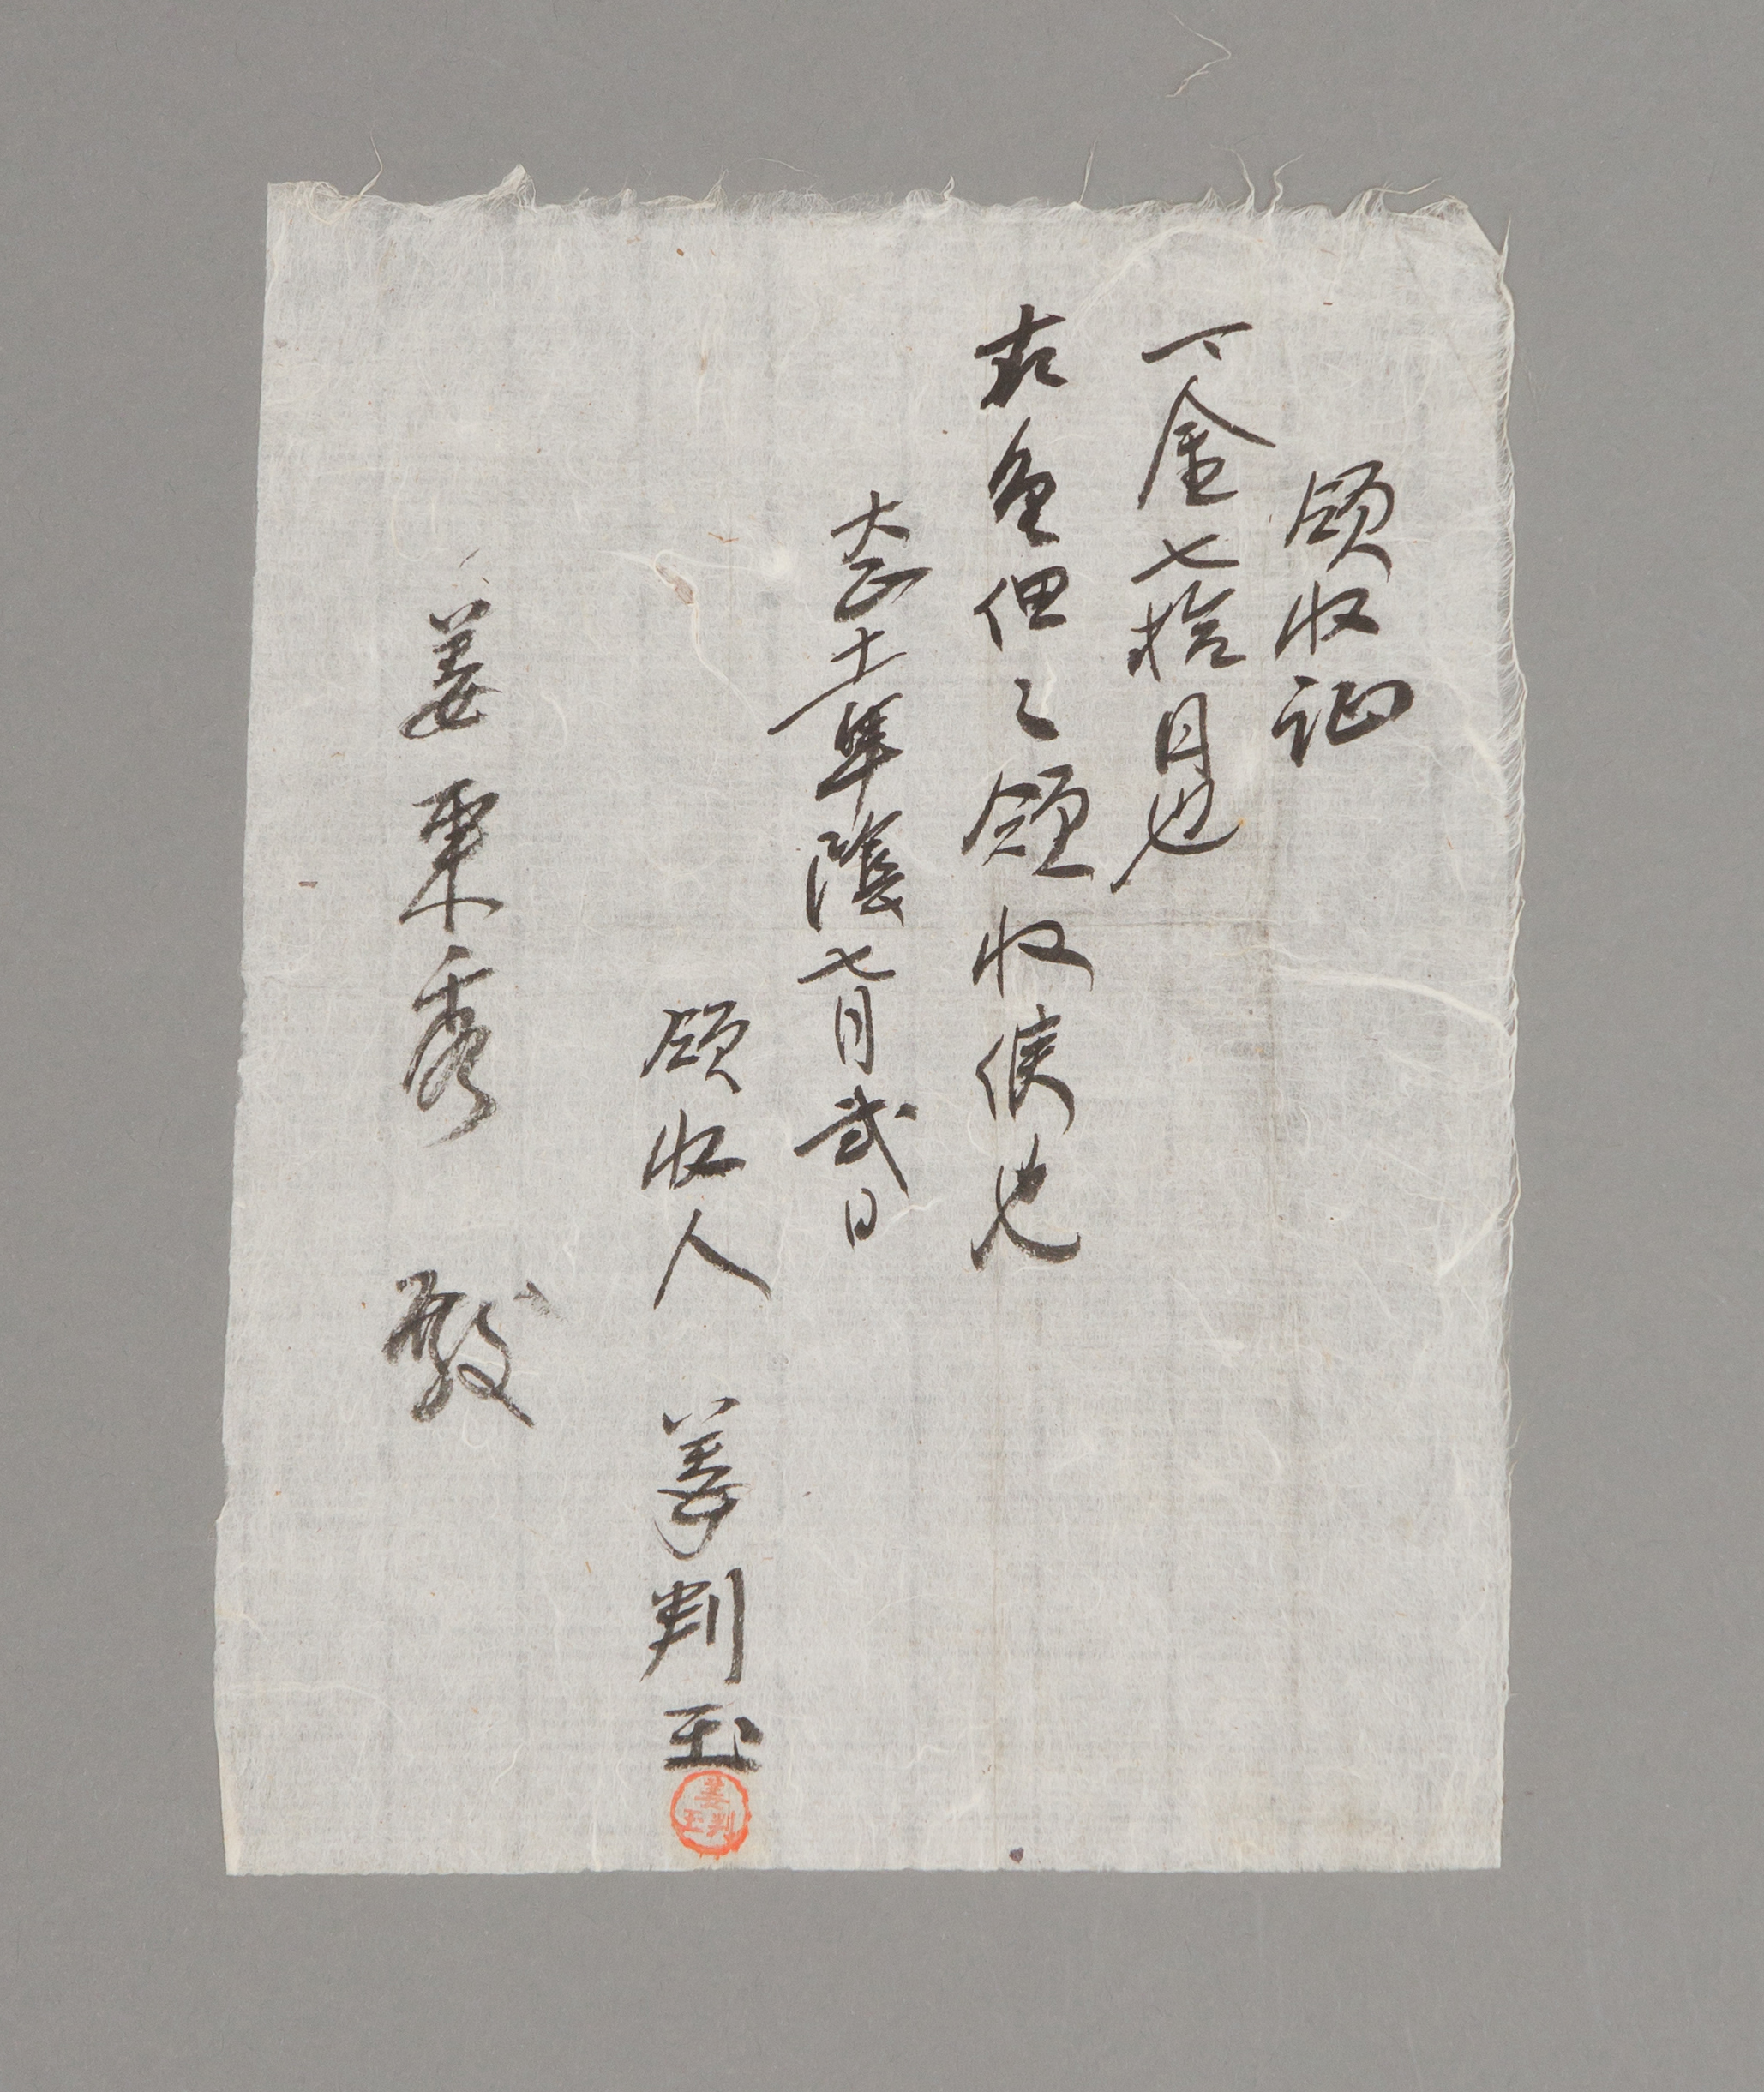 領收証
一金七拾円也
右金之領收候也
大正十一年陰七月弐日
領收人 姜判玉
姜判玉
姜秉秀 殿